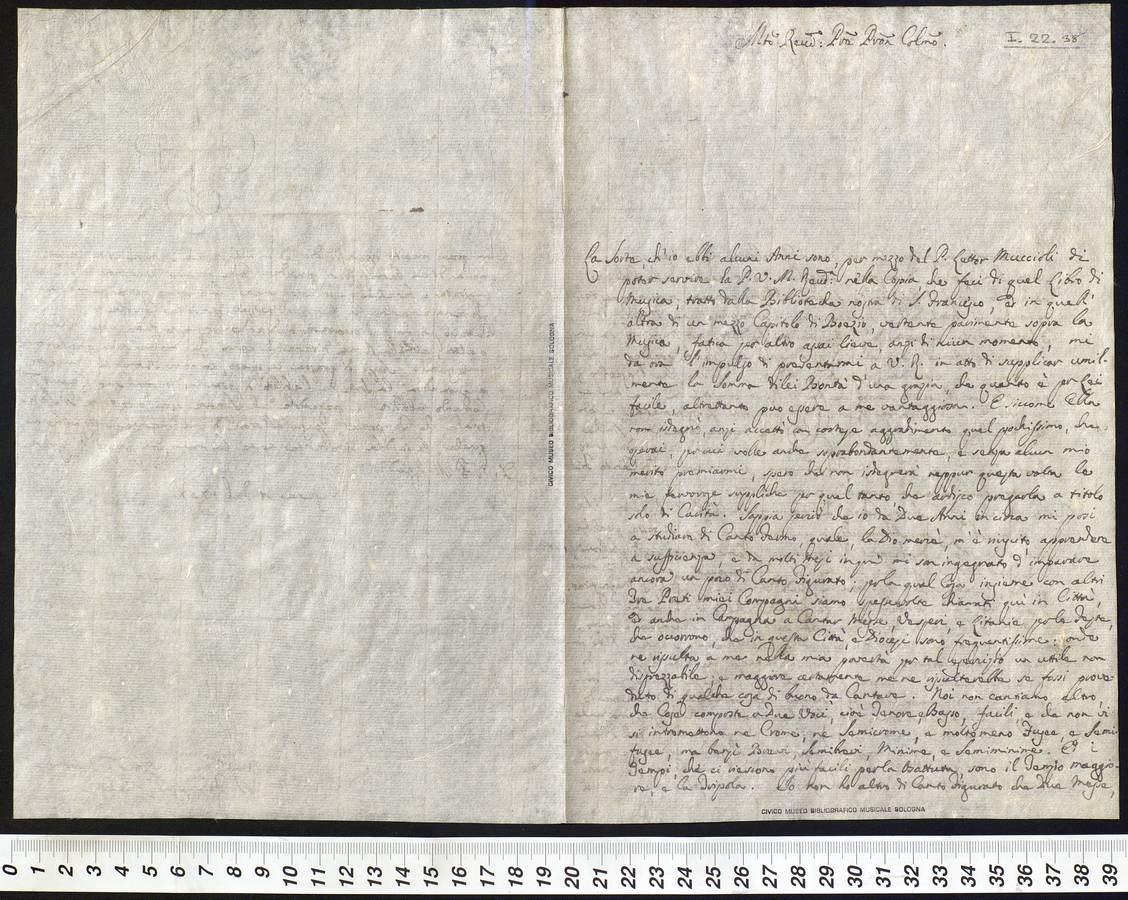 I. 22. 38
Mto Rev: Pre Pron Colmo.
La Sorte ch'io ebbi alcuni Anni sono, per mezzo del P. Lettor Muccioli di
poter servire la P. V. M. Revd: nella Copia che feci di quel Libro di
Musica, tratto dalla Biblioteca nostra di S. Francesco, et in quell'
altra di un mezzo Capitolo di Boezio, vertente parimente sopra la
Musica, fatica per altro assai lieve, anzi di niun momento, mi
da ora l'impulso di presentarmi a V. R. in atto di supplicar umil-
mente la somma di lei Bontà d'una grazia, che quanto è per Lei
facile, altrettanto può essere a me vantaggiosa. E siccome Ella
non isdegnò, anzi accettò con cortese aggradimento quel pochissimo, che
operai, per cui volle anche soprabondantemente, e senza alcun mio
merito premiarmi, spero che non isdegnerà neppur questa volta le
mie fervorose suppliche per quel tanto che ardisco pregarla a titolo
solo di Carità. Sappia perciò che io da Due Anni in circa mi posi
a studiare di Canto Fermo, quale, la Dio mercè, m'è riuscito apprendere
a sufficienza, e da molti mesi in quà mi son ingegnato d'imparare
ancora un poco di Canto Figurato; per la qual Cosa insieme con altri
Due Preti miei Compagni siamo spessevolte chiamati quì in Città,
et anche in Campagna a Cantar Messe, Vesperi, e Litanie per le Feste,
che occorrono, che in questa Città, e Diocesi sono frequentissime: onde
ne risulta a me nella mia povertà per tal esercizio un utile non
disprezzabile; e maggiore certamente me ne risulterebbe se fossi prove-
duto di qualche cosa di buono da Cantare. Noi non cantiamo altro,
che Cose composte a due Voci, cioè Tenore, e Basso, facili, e che non vi
si intramettono ne Crome, ne Semicrome, e molto meno Fughe, e Semi-
fughe, ma bensì Brevi, Semibrevi, Minime, e Semiminime. E i
Tempi che ci riescono più facili per la Battuta, sono il Tempo maggio-
re, e la Tripola. Io non ho altro di Canto Figurato che due Messe,
CIVICO MUSEO BIBLIOGRAFICO MUSICALE BOLOGNA
CIVICO MUSEO BIBLIOGRAFICO MUSICALE BOLOGNA
0 1 2 3 4 5 6 7 8 9 10 11 12 13 14 15 16 17 18 19 20 21 22 23 24 25 26 27 28 29 30 31 32 33 34 35 36 37 38 39